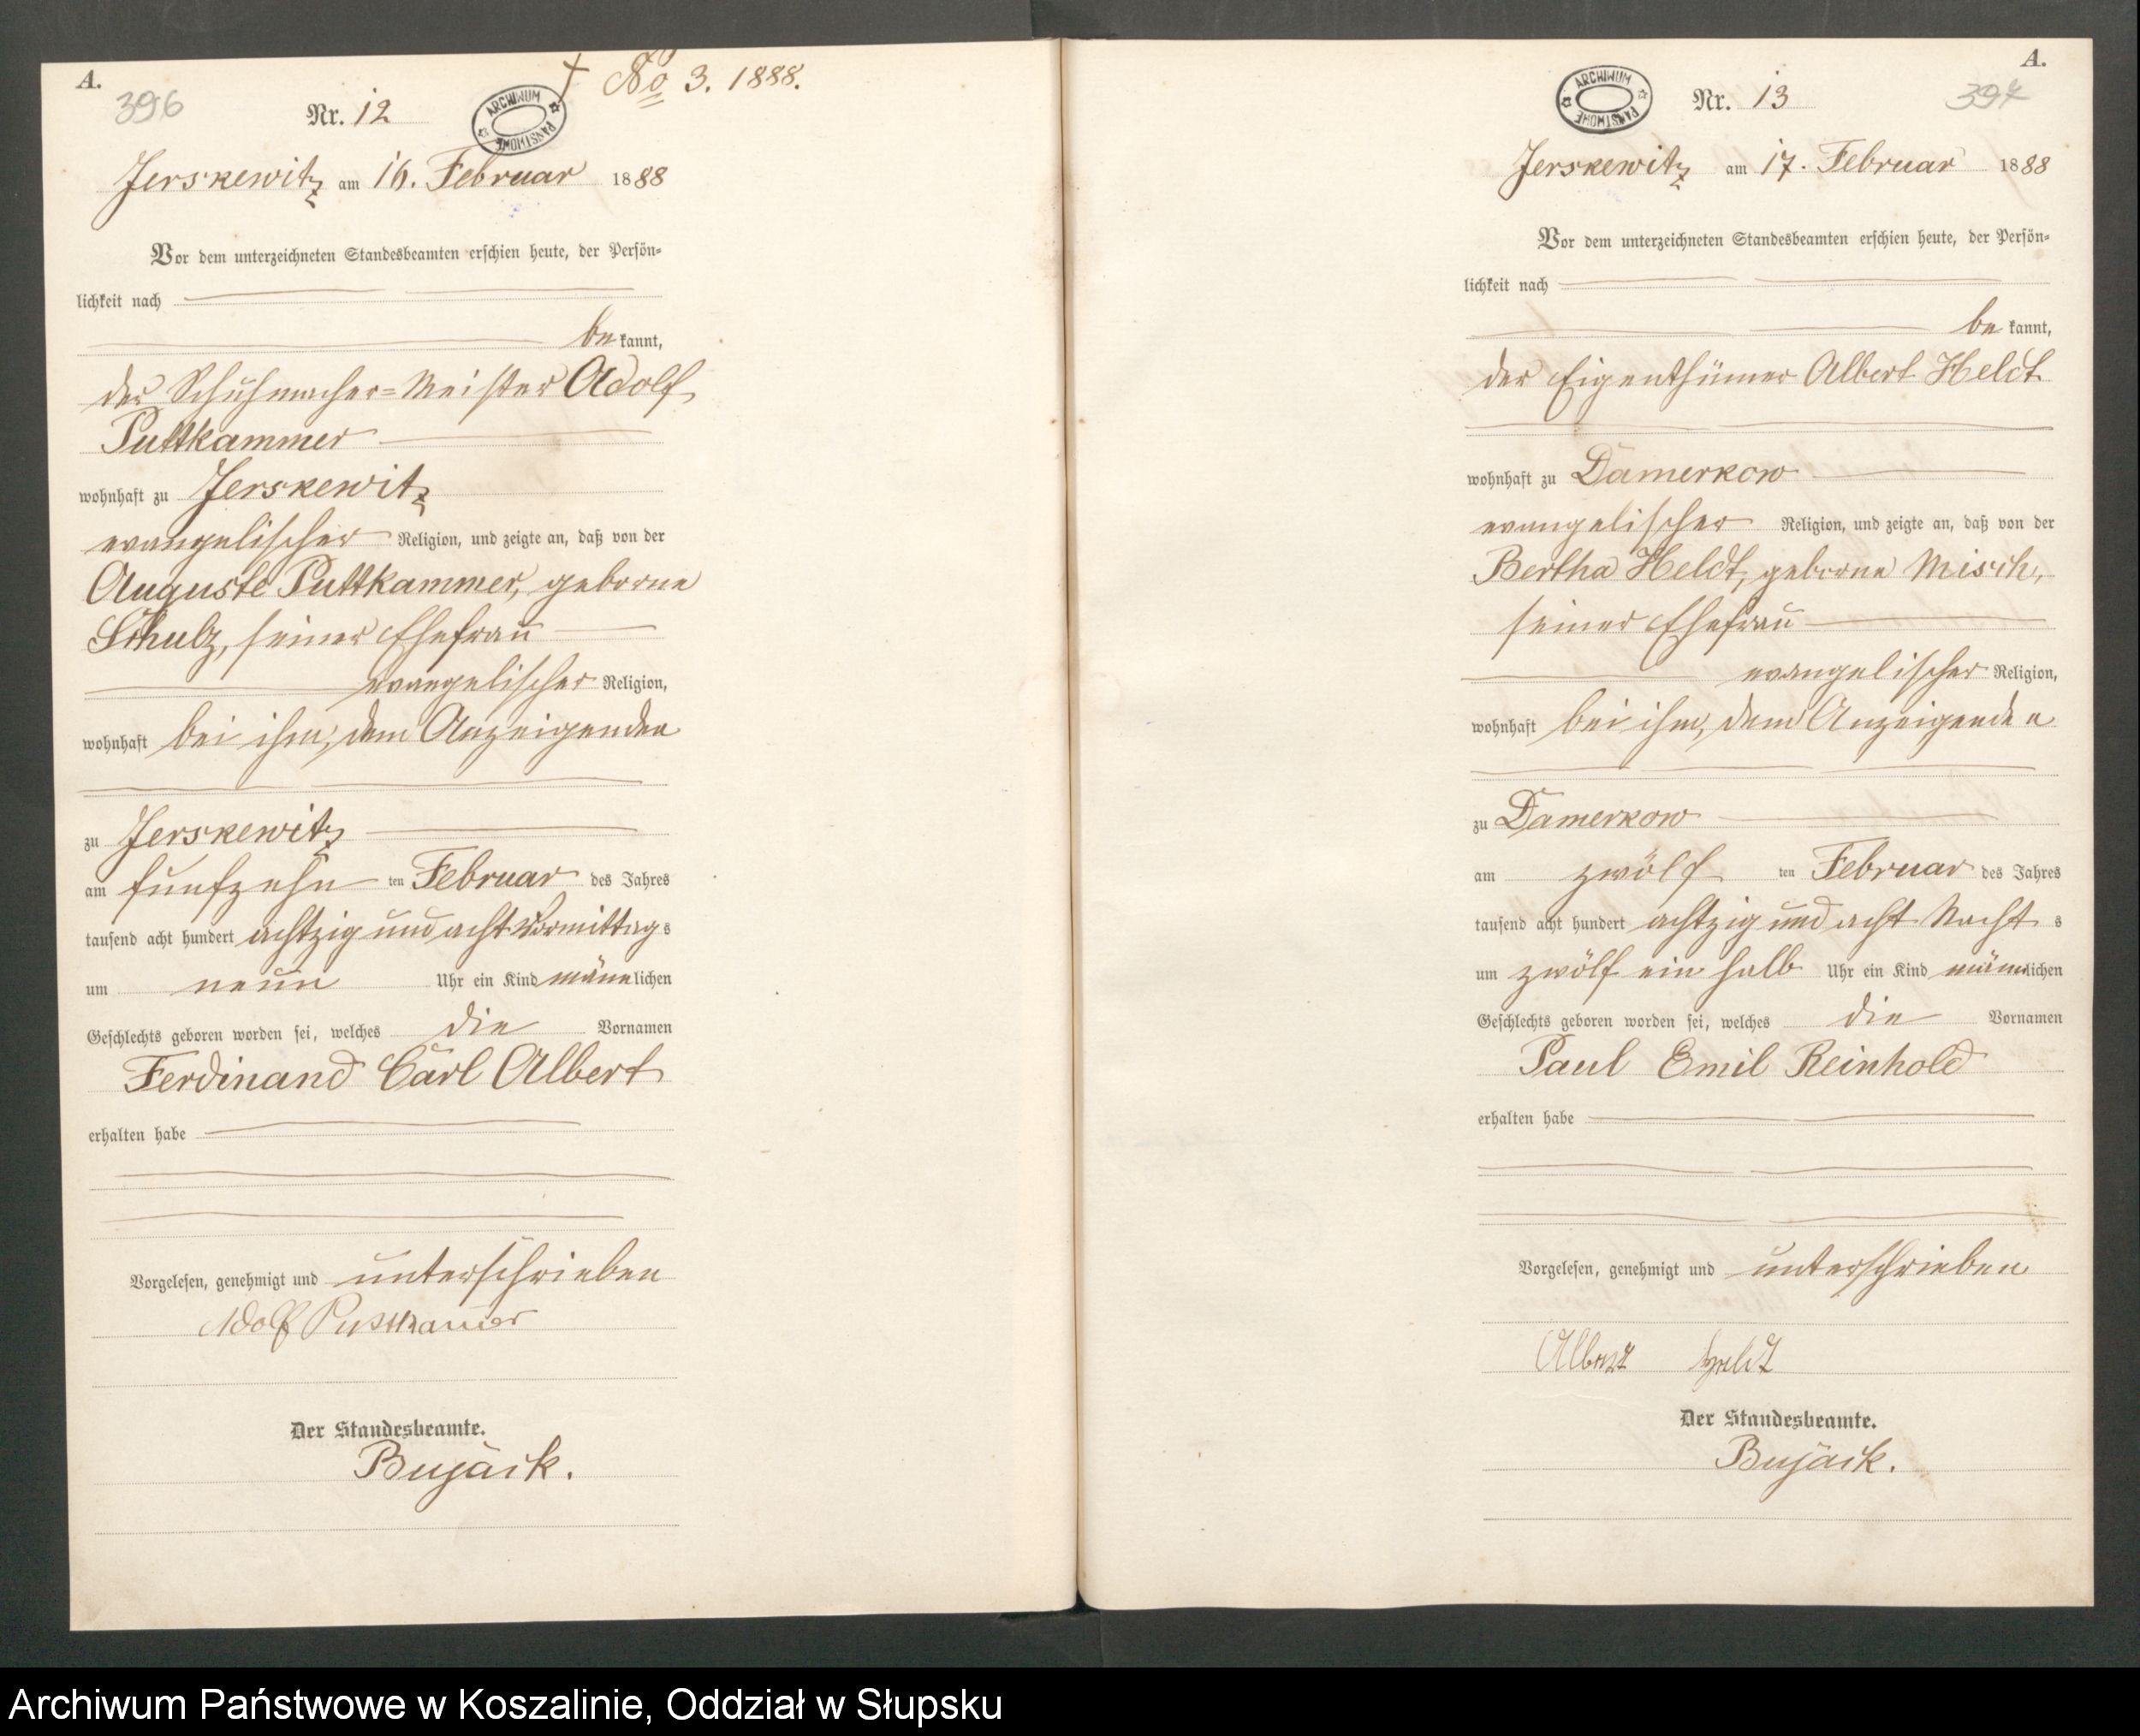 A.
396
† No 3. 1888.
Nr. 12
ARCHIWUM PAŃSTWOWE
Jerskewitz am 16. Februar 1888
Vor dem unterzeichneten Standesbeamten erschien heute, der Persön-
lichkeit nach
be kannt,
der Schuhmacher=Meister Adolf
Puttkammer
wohnhaft zu Jerskewitz
evangelischer Religion, und zeigte an, daß von der
Auguste Puttkammer, geborne
Schulz, seiner Ehefrau
evangelischer Religion,
wohnhaft bei ihm, dem Anzeigenden
zu Jerskewitz
am fünfzehn ten Februar des Jahres
tausend acht hundert achtzig und acht Vormittag s
um neun Uhr ein Kind männlichen
Geschlechts geboren worden sei, welches die Vornamen
Ferdinand Carl Albert
erhalten habe
Vorgelesen, genehmigt und unterschrieben
Adolf Puttkamer
Der Standesbeamte.
Bujack.
A.
397
ARCHIWUM PAŃSTWOWE
Nr. 13
Jerskewitz am 17. Februar 1888
Vor dem unterzeichneten Standesbeamten erschien heute, der Persön-
lichkeit nach
be kannt,
der Eigenthümer Albert Heldt
wohnhaft zu Damerkow
evangelischer Religion, und zeigte an, daß von der
Bertha Heldt, geborne Misch,
seiner Ehefrau
evangelischer Religion,
wohnhaft bei ihm, dem Anzeigenden
zu Damerkow
am zwölf ten Februar des Jahres
tausend acht hundert achtzig und acht Nacht s
um zwölf ein halb Uhr ein Kind männlichen
Geschlechts geboren worden sei, welches die Vornamen
Paul Emil Reinhold
erhalten habe
Vorgelesen, genehmigt und unterschrieben
Albert Heldt
Der Standesbeamte.
Bujack.
Archiwum Państwowe w Koszalinie, Oddział w Słupsku